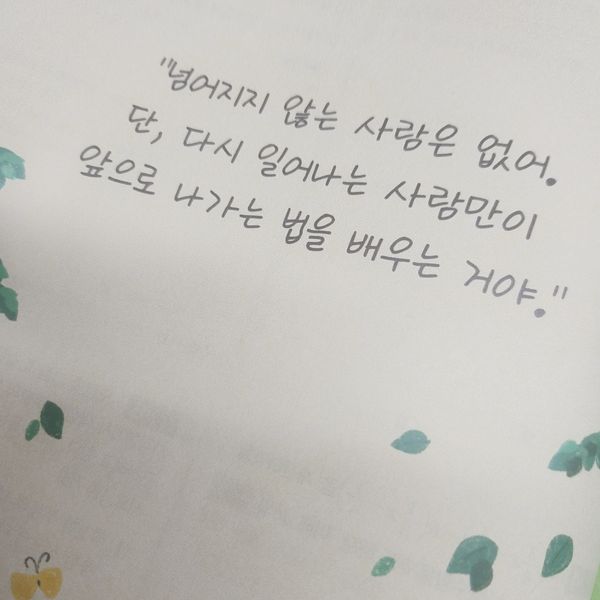 "넘어지지 않는 사람은 없어.
단, 다시 일어나는 사람만이
앞으로 나가는 법을 배우는 거야."